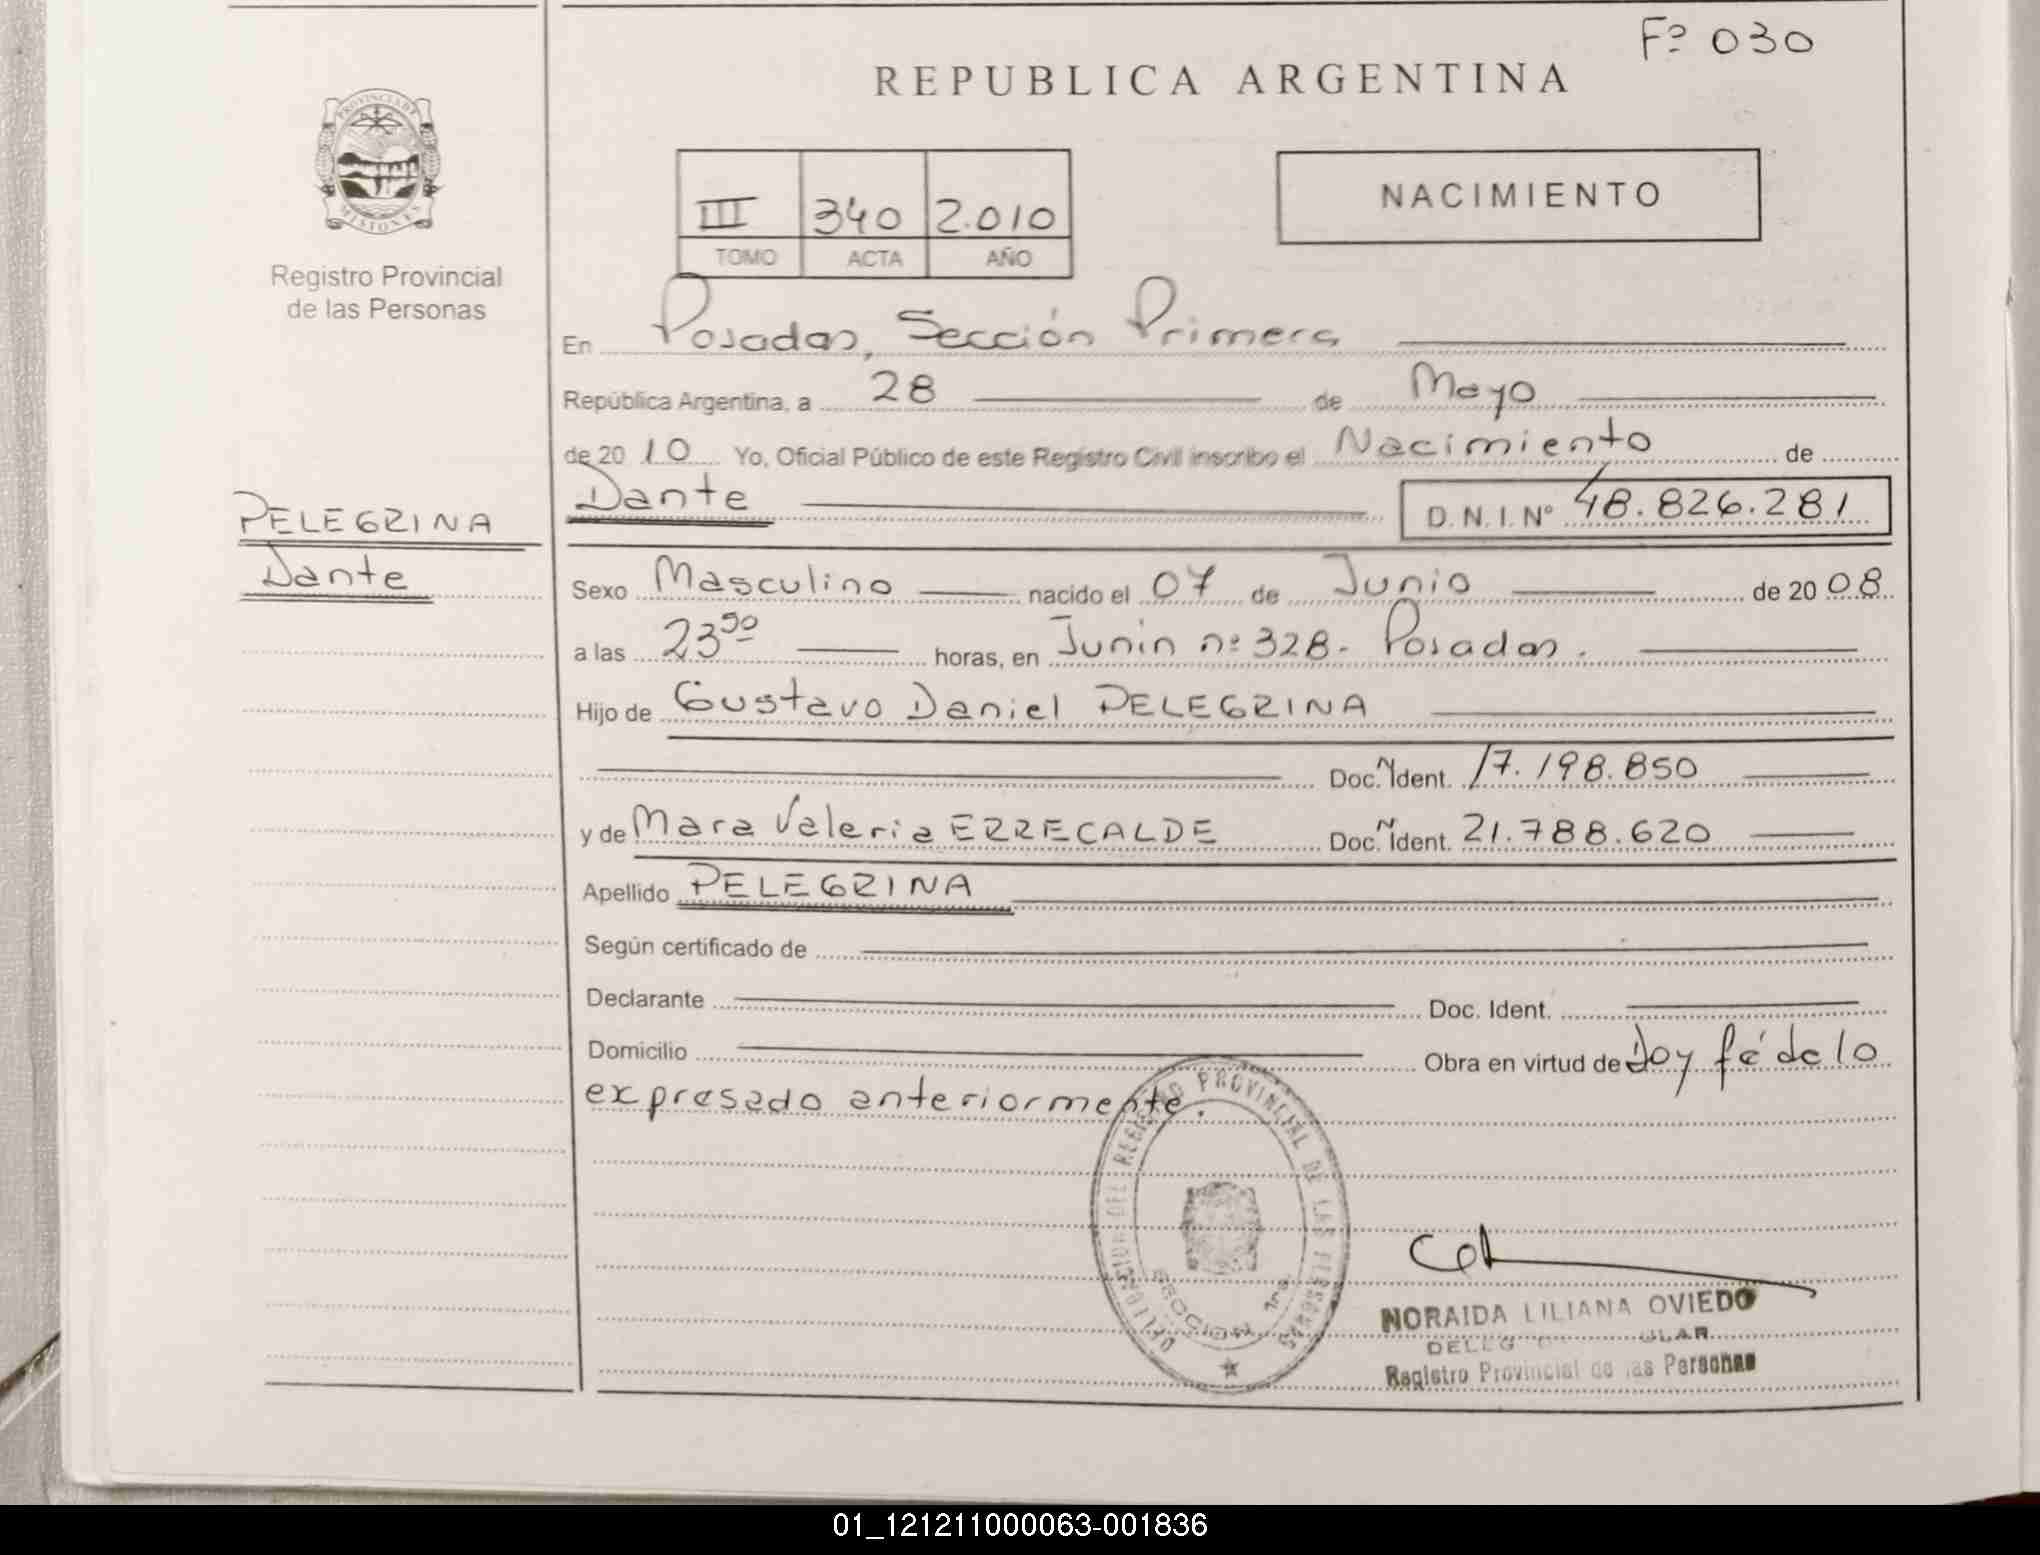 Fº 030
REPUBLICA ARGENTINA
PROVINCIA DE
MISIONES
Registro Provincial
de las Personas
III 340 2.010
TOMO ACTA AÑO
NACIMIENTO
En Posadas, Sección Primera
República Argentina, a 28 de Mayo
de 2010 Yo, Oficial Público de este Registro Civil inscribo el Nacimiento de
PELEGRINA
Dante
Dante D.N.I. Nº 48.826.281
Sexo Masculino nacido el 07 de Junio de 2008
a las 23 50 horas, en Junin nº 328. Posadas.
Hijo de Gustavo Daniel PELEGRINA
Doc. N Ident. 17.198.850
y de Mara Valeria ERRECALDE Doc. N Ident. 21.788.620
Apellido PELEGRINA
Según certificado de
Declarante Doc. Ident.
Domicilio Obra en virtud de Doy fé de lo
expresado anteriormente.
DELEGACION DEL REGISTRO PROVINCIAL DE LAS PERSONAS
SECCION 1ra
NORAIDA LILIANA OVIEDO
Registro Provincial de las Personas
01_121211000063-001836